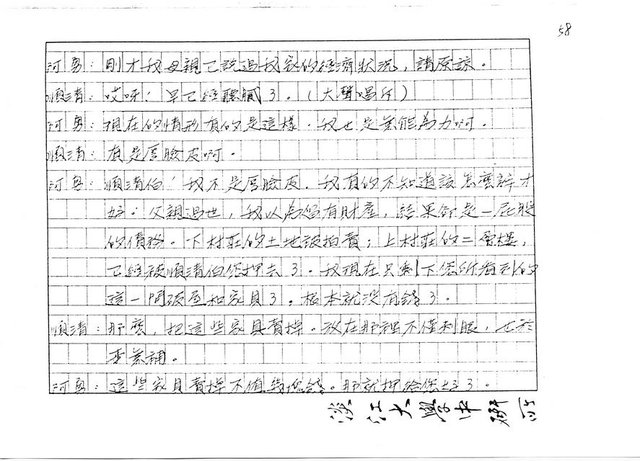 58
阿勇：剛才我母親已說過我家的經濟狀況，請原諒。
順清：哎呀！早已經聽膩了。（大聲喝斥）
阿勇：現在的情形真的是這樣，我也是無能為力啊。
順清：真是厚臉皮啊。
阿勇：順清伯！我不是厚臉皮，我真的不知道該怎麼辦才
好。父親過世，我以為留有財產，結果卻是一屁股
的債務。下村莊的土地被拍賣；上村莊的二層樓，
已經被順清伯您押去了。我現在只剩下您所看到的
這一間破屋和家具了，根本就沒有錢了。
順清：那麼，把這些家具賣掉。放在那裡不僅利服，
無補。
阿勇：這些家具賣掉不值幾個錢。那就押給您好了。
淡江大學中研所